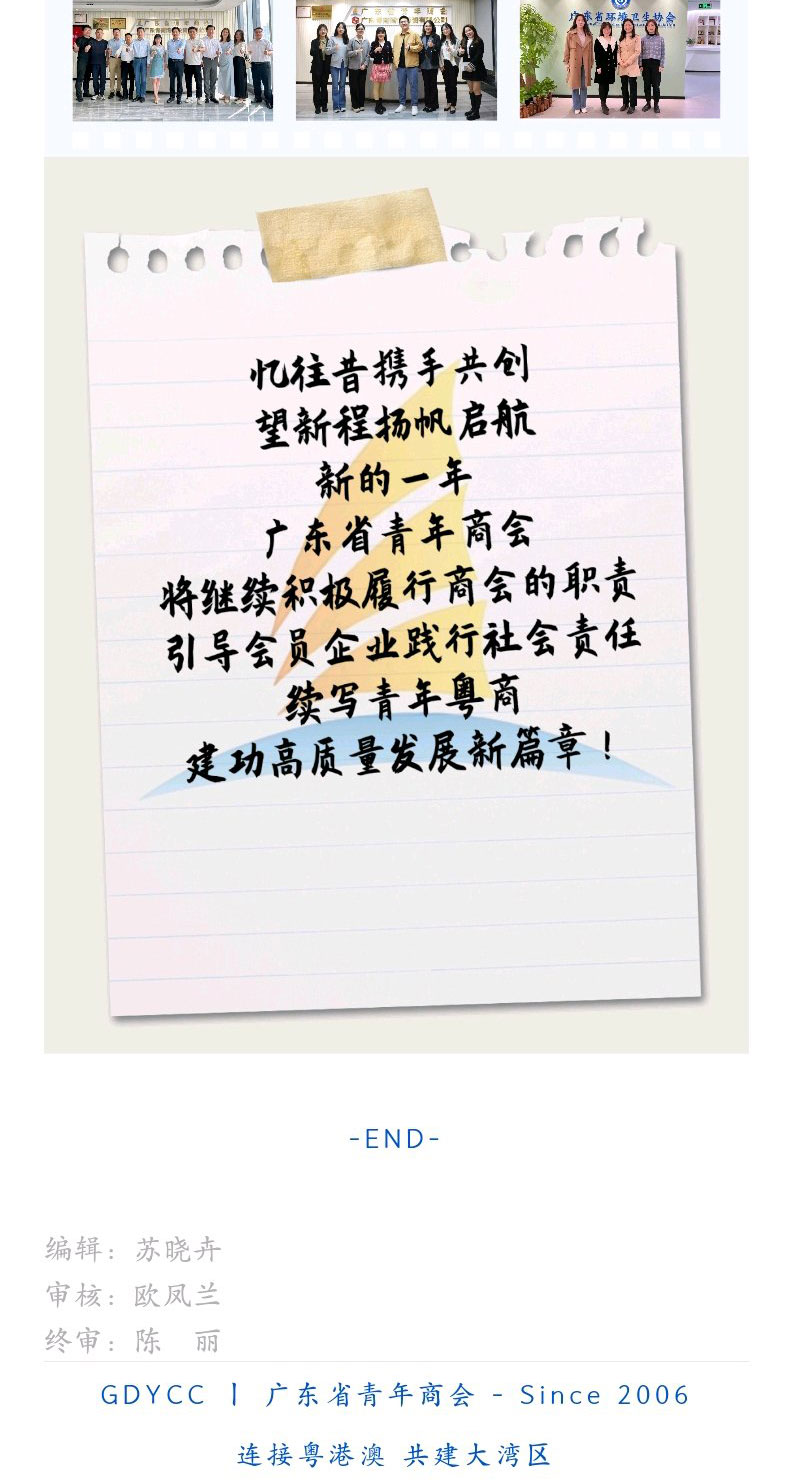 广东省环境卫生协会
忆往昔携手共创
望新程扬帆启航
新的一年
广东省青年商会
将继续积极履行商会的职责
引导会员企业践行社会责任
续写青年粤商
建功高质量发展新篇章！
-END-
编辑：苏晓卉
审核：欧凤兰
终审：陈　丽
GDYCC 丨 广东省青年商会 - Since 2006
连接粤港澳 共建大湾区